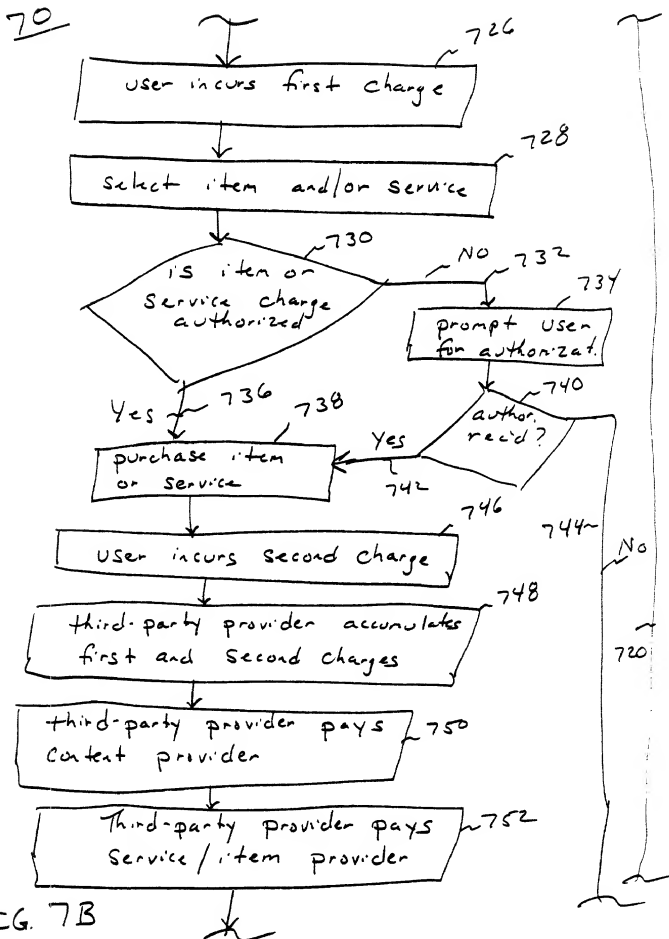 70
726
user incurs first charge
728
select item and/or service
730
is item or
service charge
authorized
NO
732
734
prompt user
for authorizat.
Yes
736
738
740
author.
rec'd?
Yes
742
purchase item
or service
746
user incurs second charge
744
No
720
748
third-party provider accumulates
first and second charges
750
third-party provider pays
content provider
752
Third-party provider pays
service/item provider
IG. 7B